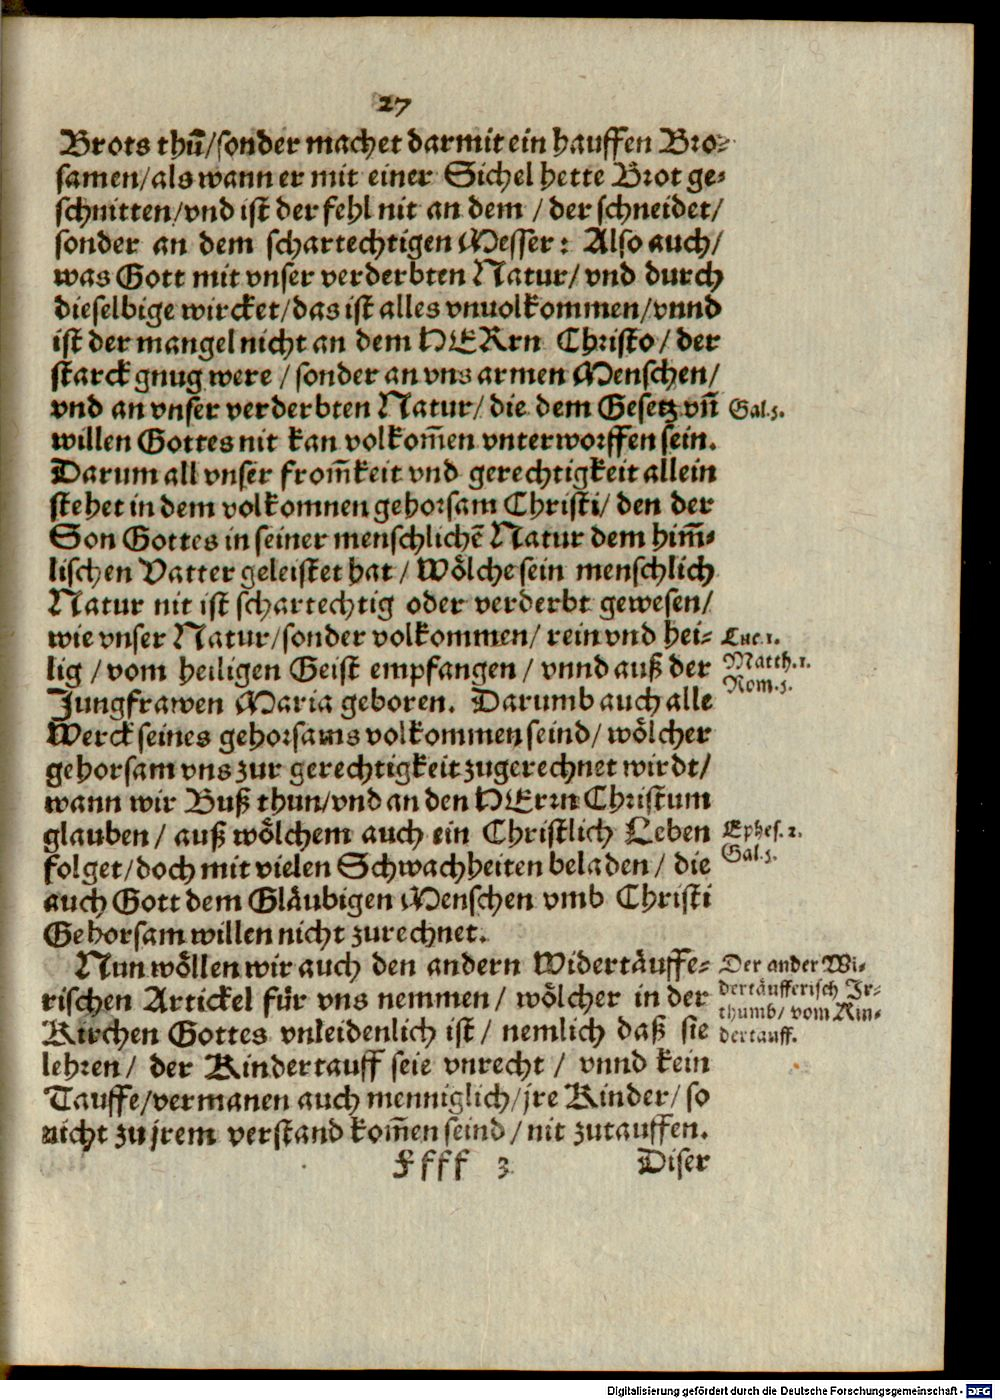 27
Brots thuͦ/sonder machet darmit ein hauffen Bro-
samen/als wann er mit einer Sichel hette Brot ge-
schnitten/vnd ist der fehl nit an dem / der schneidet/
sonder an dem schartechtigen Messer: Also auch/
was Gott mit vnser verderbten Natur/ vnd durch
dieselbige wircket/das ist alles vnuolkommen/vnnd
ist der mangel nicht an dem HERrn Christo/ der
starck gnug were / sonder an vns armen Menschen/
vnd an vnser verderbten Natur/ die dem Gesetz vñ
Gal.5.
willen Gottes nit kan volkom̃en vnterworffen sein.
Darum all vnser from̃keit vnd gerechtigkeit allein
stehet in dem volkomnen gehorsam Christi/ den der
Son Gottes in seiner menschlichẽ Natur dem him̃-
lischen Vatter geleistet hat / Wölche sein menschlich
Natur nit ist schartechtig oder verderbt gewesen/
wie vnser Natur/sonder volkommen/ rein vnd hei-
Luc.1.
lig / vom heiligen Geist empfangen / vnnd auß der
Matth.1.
Rom.5.
Jungfrawen Maria geboren. Darumb auch alle
Werck seines gehorsams volkommen seind/ wölcher
gehorsam vns zur gerechtigkeit zugerechnet wirdt/
wann wir Buß thun/vnd an den HErrn Christum
glauben/ auß wölchem auch ein Christlich Leben
Ephes. 2.
folget/doch mit vielen Schwachheiten beladen/ die
Gal.5.
auch Gott dem Gläubigen Menschen vmb Christi
Gehorsam willen nicht zurechnet.
Nun wöllen wir auch den andern Widertäuffe-
Der ander Wi-
rischen Artickel für vns nemmen/ wölcher in der
dertäufferisch Jr-
thumb/ vom Kin-
Kirchen Gottes vnleidenlich ist/ nemlich daß sie
dertauff.
lehren/ der Kindertauff seie vnrecht/ vnnd kein
Tauffe/vermanen auch menniglich/jre Kinder/ so
nicht zu jrem verstand kom̃en seind/nit zutauffen.
Ffff 3 Diser
Digitalisierung gefördert durch die Deutsche Forschungsgemeinschaft - DFG